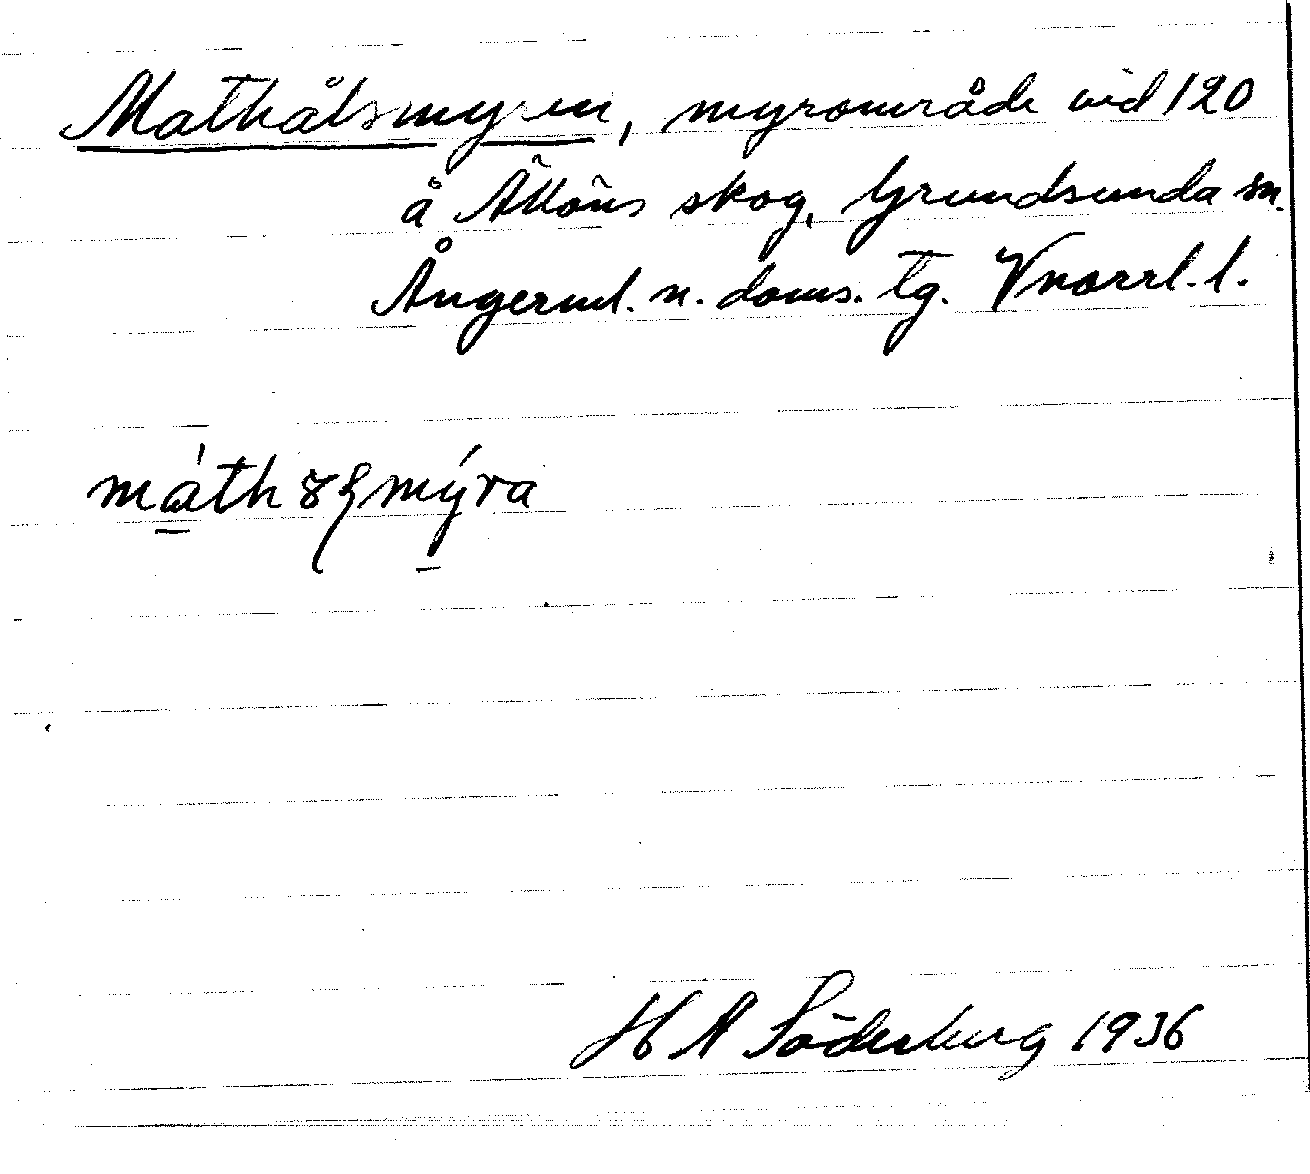 Mathålsmyren, myrområde vid 120
å Älköns skog, Grundsunda sn.
Ångerml. n. doms. tg. Vnorrl. l.
máth mýra
H A Söderberg 1936